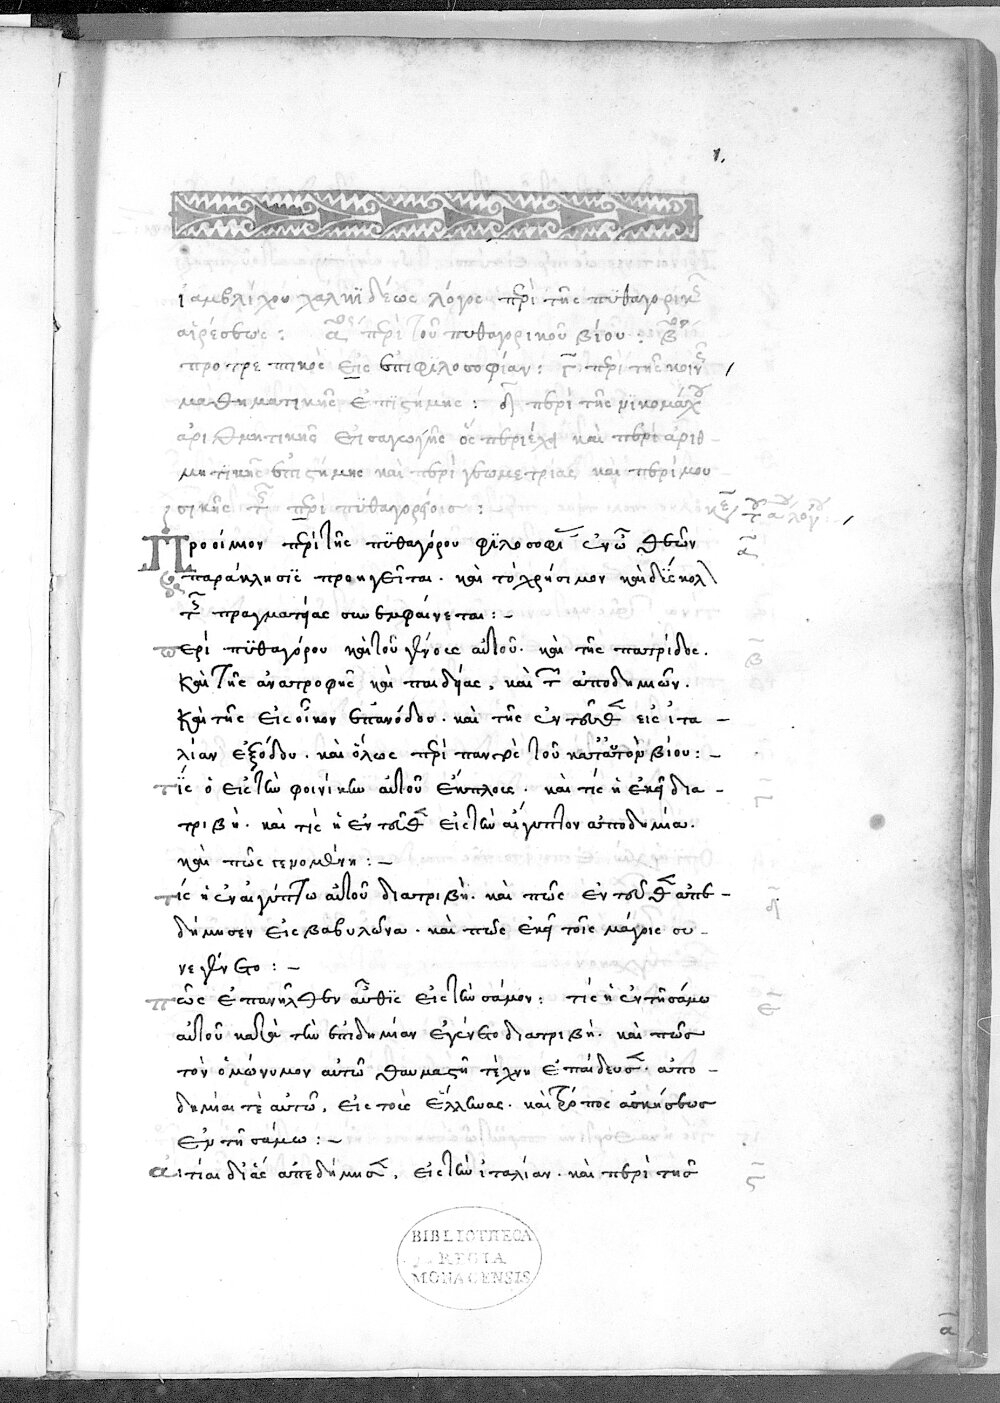 1.
ἰαμβλίχου χαλκιδέως λόγος περὶ τῆς πυθαγορικῆς
αἱρέσεως : αος περὶ τοῦ πυθαγορικοῦ βίου : βος
προτρεπτικὸς εἰς ἐπιφιλοσοφίαν : γ περὶ τῆς κοινῆς
μαθηματικῆς ἐπιστήμης : δ περὶ τῆς νικομάχου
ἀριθμητικῆς εἰσαγωγῆς ὃς περιέχει καὶ περὶ ἀριθ-
μητικῆς ἐπιστήμης καὶ περὶ γεωμετρίας καὶ περὶ μου
σικῆς τῆς περὶ πυθαγορείοις :
Προοίμιον περὶ τῆς πυθαγόρου φιλοσοφίας ἐν ὧ θεῶν
α
παράκλησις προηγεῖται. καὶ τὸ χρήσιμον καὶ δύσκολον
τῆς πραγματείας συνεμφαίνεται : -
περὶ πυθαγόρου καὶ τοῦ γένους αὐτοῦ. καὶ τῆς πατρίδος.
β
καὶ τῆς ἀνατροφῆς καὶ παιδείας, καὶ τῶν ἀποδημιῶν.
καὶ τῆς εἰς οἶκον ἐπανόδου. καὶ τῆς ἐντεῦθεν εἰς ἰτα -
λίαν ἐξόδου. καὶ ὅλως περὶ παντὸς τοῦ κατ' αὐτὸν βίου : -
τίς ὁ εἰς τὴν φοινίκην αὐτοῦ ἔκπλους. καὶ τίς ἡ ἐκεῖ δια -
γ
τριβή. καὶ τίς ἡ ἐντεῦθεν εἰς τὴν αἴγυπτον ἀποδημία.
καὶ πῶς γενομένη : -
τίς ἡ ἐν αἰγύπτω αὐτοῦ διατριβή. καὶ πῶς ἐντεῦθεν ἀπε -
δ
δήμησεν εἰς βαβυλῶνα. καὶ πῶς ἐκεῖ τοῖς μάγοις συ -
νεγένετο : -
πῶς ἐπανῆλθεν αὖθις εἰς τὴν σάμον : τίς ἡ ἐν τῆ σάμω
ε
αὐτοῦ κατὰ τὴν ἐπιδημίαν ἐγένετο διατριβή. καὶ πῶς
τὸν ὁμώνυμον αὐτῶ θαυμαστῆ τέχνη ἐπαίδευσεν. ἀπο -
δημίαι τὲ αὐτῶ, εἰς τοὺς ἕλληνας. καὶ τρόπος ἀσκήσεως
ἐν τῆ σάμω : -
αἰτίαι δι' ἃς ἀπεδήμησεν, εἰς τὴν ἰταλίαν. καὶ περὶ τῆς
ς
BIBLIOTHECA
REGIA
MONACENSIS
α